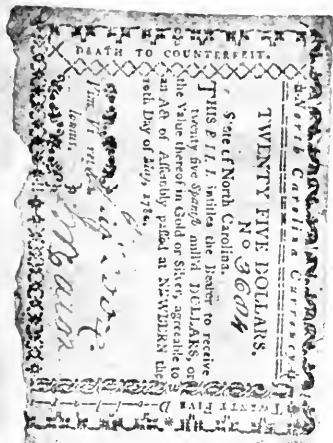 North Carolina Currency.
TWENTY FIVE DOLLARS.
No 3604
State of North Carolina.
THIS BILL intitles the Bearer to receive
twenty five Spanish mill'd DOLLARS, or
the Value thereof in Gold or Silver, agreeable to
an Act of Assembly passed at NEWBERN the
10th Day of May, 1780.
DEATH TO COUNTERFEIT.
TWENTY FIVE Dollars